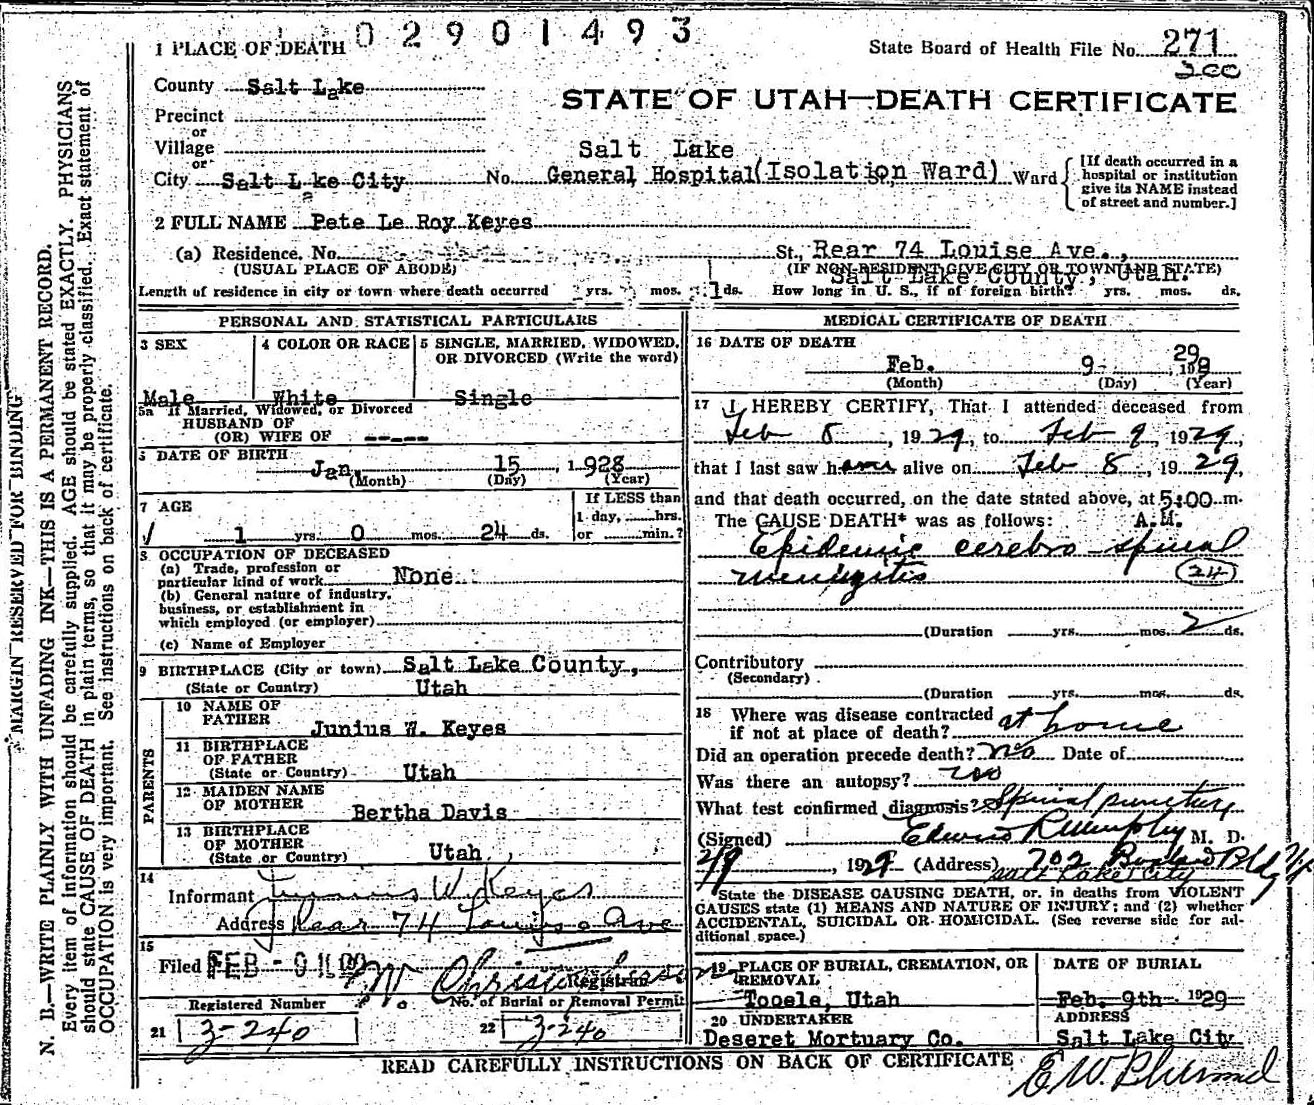 02901493
1 PLACE OF DEATH
State Board of Health File No. 271
200
County Salt Lake
STATE OF UTAH—DEATH CERTIFICATE
Precinct
or
Village
or
City Salt Lake City No. Salt Lake General Hospital (Isolation Ward) Ward
[If death occurred in a hospital or institution give its NAME instead of street and number.]
2 FULL NAME Pete Le Roy Keyes
(a) Residence. No. St., Rear 74 Louise Ave.,
(USUAL PLACE OF ABODE) (IF NON-RESIDENT GIVE CITY OR TOWN AND STATE)
Salt Lake County, Utah.
Length of residence in city or town where death occurred yrs. mos. 1 ds. How long in U. S., if of foreign birth? yrs. mos. ds.
PERSONAL AND STATISTICAL PARTICULARS
3 SEX
Male
4 COLOR OR RACE
White
5 SINGLE, MARRIED, WIDOWED, OR DIVORCED (Write the word)
Single
5a If Married, Widowed, or Divorced
HUSBAND OF
(OR) WIFE OF -----
DATE OF BIRTH
Jan. 15, 1928
(Month) (Day) (Year)
7 AGE
If LESS than
1 day, hrs.
or min.?
1 yrs. 0 mos. 24 ds.
OCCUPATION OF DECEASED
(a) Trade, profession or
particular kind of work None
(b) General nature of industry,
business, or establishment in
which employed (or employer)
(c) Name of Employer
9 BIRTHPLACE (City or town) Salt Lake County,
(State or Country) Utah
PARENTS
10 NAME OF
FATHER
Junius W. Keyes
11 BIRTHPLACE
OF FATHER
(State or Country) Utah
12 MAIDEN NAME
OF MOTHER
Bertha Davis
13 BIRTHPLACE
OF MOTHER
(State or Country) Utah,
14
Informant Junius W. Keyes
Address Rear 74 Louise Ave
15
Filed FEB - 9
Registrar
Registered Number
21 3-240
No. of Burial or Removal Permit
22 3-240
MEDICAL CERTIFICATE OF DEATH
16 DATE OF DEATH
Feb. 9- 29
(Month) (Day) (Year)
17 I HEREBY CERTIFY, That I attended deceased from
Feb 8, 1929, to Feb 9, 1929,
that I last saw h alive on Feb 8, 1929,
and that death occurred, on the date stated above, at 5:00 m.
The CAUSE DEATH* was as follows: A.M.
Epidemic cerebro-spinal
meningitis 24
(Duration yrs. mos. 2 ds.
Contributory
(Secondary)
(Duration yrs. mos. ds.
18 Where was disease contracted
if not at place of death? at home
Did an operation precede death? no Date of
Was there an autopsy? no
What test confirmed diagnosis? Spinal puncture
(Signed) Edwin R. Murphy M. D.
2/9, 1929 (Address) 702 Boston Bldg
Salt Lake City
*State the DISEASE CAUSING DEATH, or, in deaths from VIOLENT
CAUSES state (1) MEANS AND NATURE OF INJURY; and (2) whether
ACCIDENTAL, SUICIDAL OR HOMICIDAL. (See reverse side for ad-
ditional space.)
19 PLACE OF BURIAL, CREMATION, OR
REMOVAL
Tooele, Utah
DATE OF BURIAL
Feb. 9th 1929
20 UNDERTAKER
Deseret Mortuary Co.
ADDRESS
Salt Lake City
READ CAREFULLY INSTRUCTIONS ON BACK OF CERTIFICATE
MARGIN RESERVED FOR BINDING
N. B.—WRITE PLAINLY WITH UNFADING INK—THIS IS A PERMANENT RECORD.
Every item of information should be carefully supplied. AGE should be stated EXACTLY. PHYSICIANS
should state CAUSE OF DEATH in plain terms, so that it may be properly classified. Exact statement of
OCCUPATION is very important. See instructions on back of certificate.